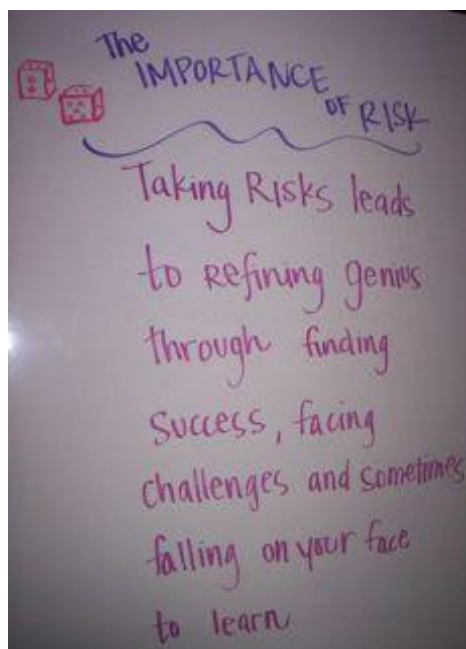 The
IMPORTANCE
OF RISK
Taking Risks leads
to Refining genius
through finding
success, facing
challenges and sometimes
falling on your face
to learn